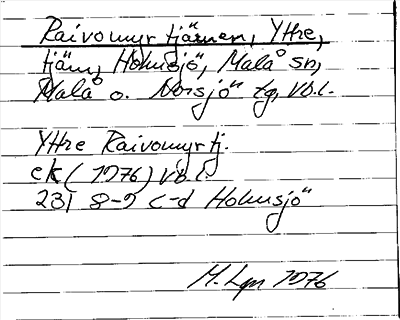 Raivomyrtjärnen, Yttre,
tjärn, Holmsjö, Malå sn,
Malå o. Norsjö tg, Vb.l.
Yttre Raivomyrtj.
ek (1976) Vb.l.
23I 8-9 c-d Holmsjö
M. Lgn 1976